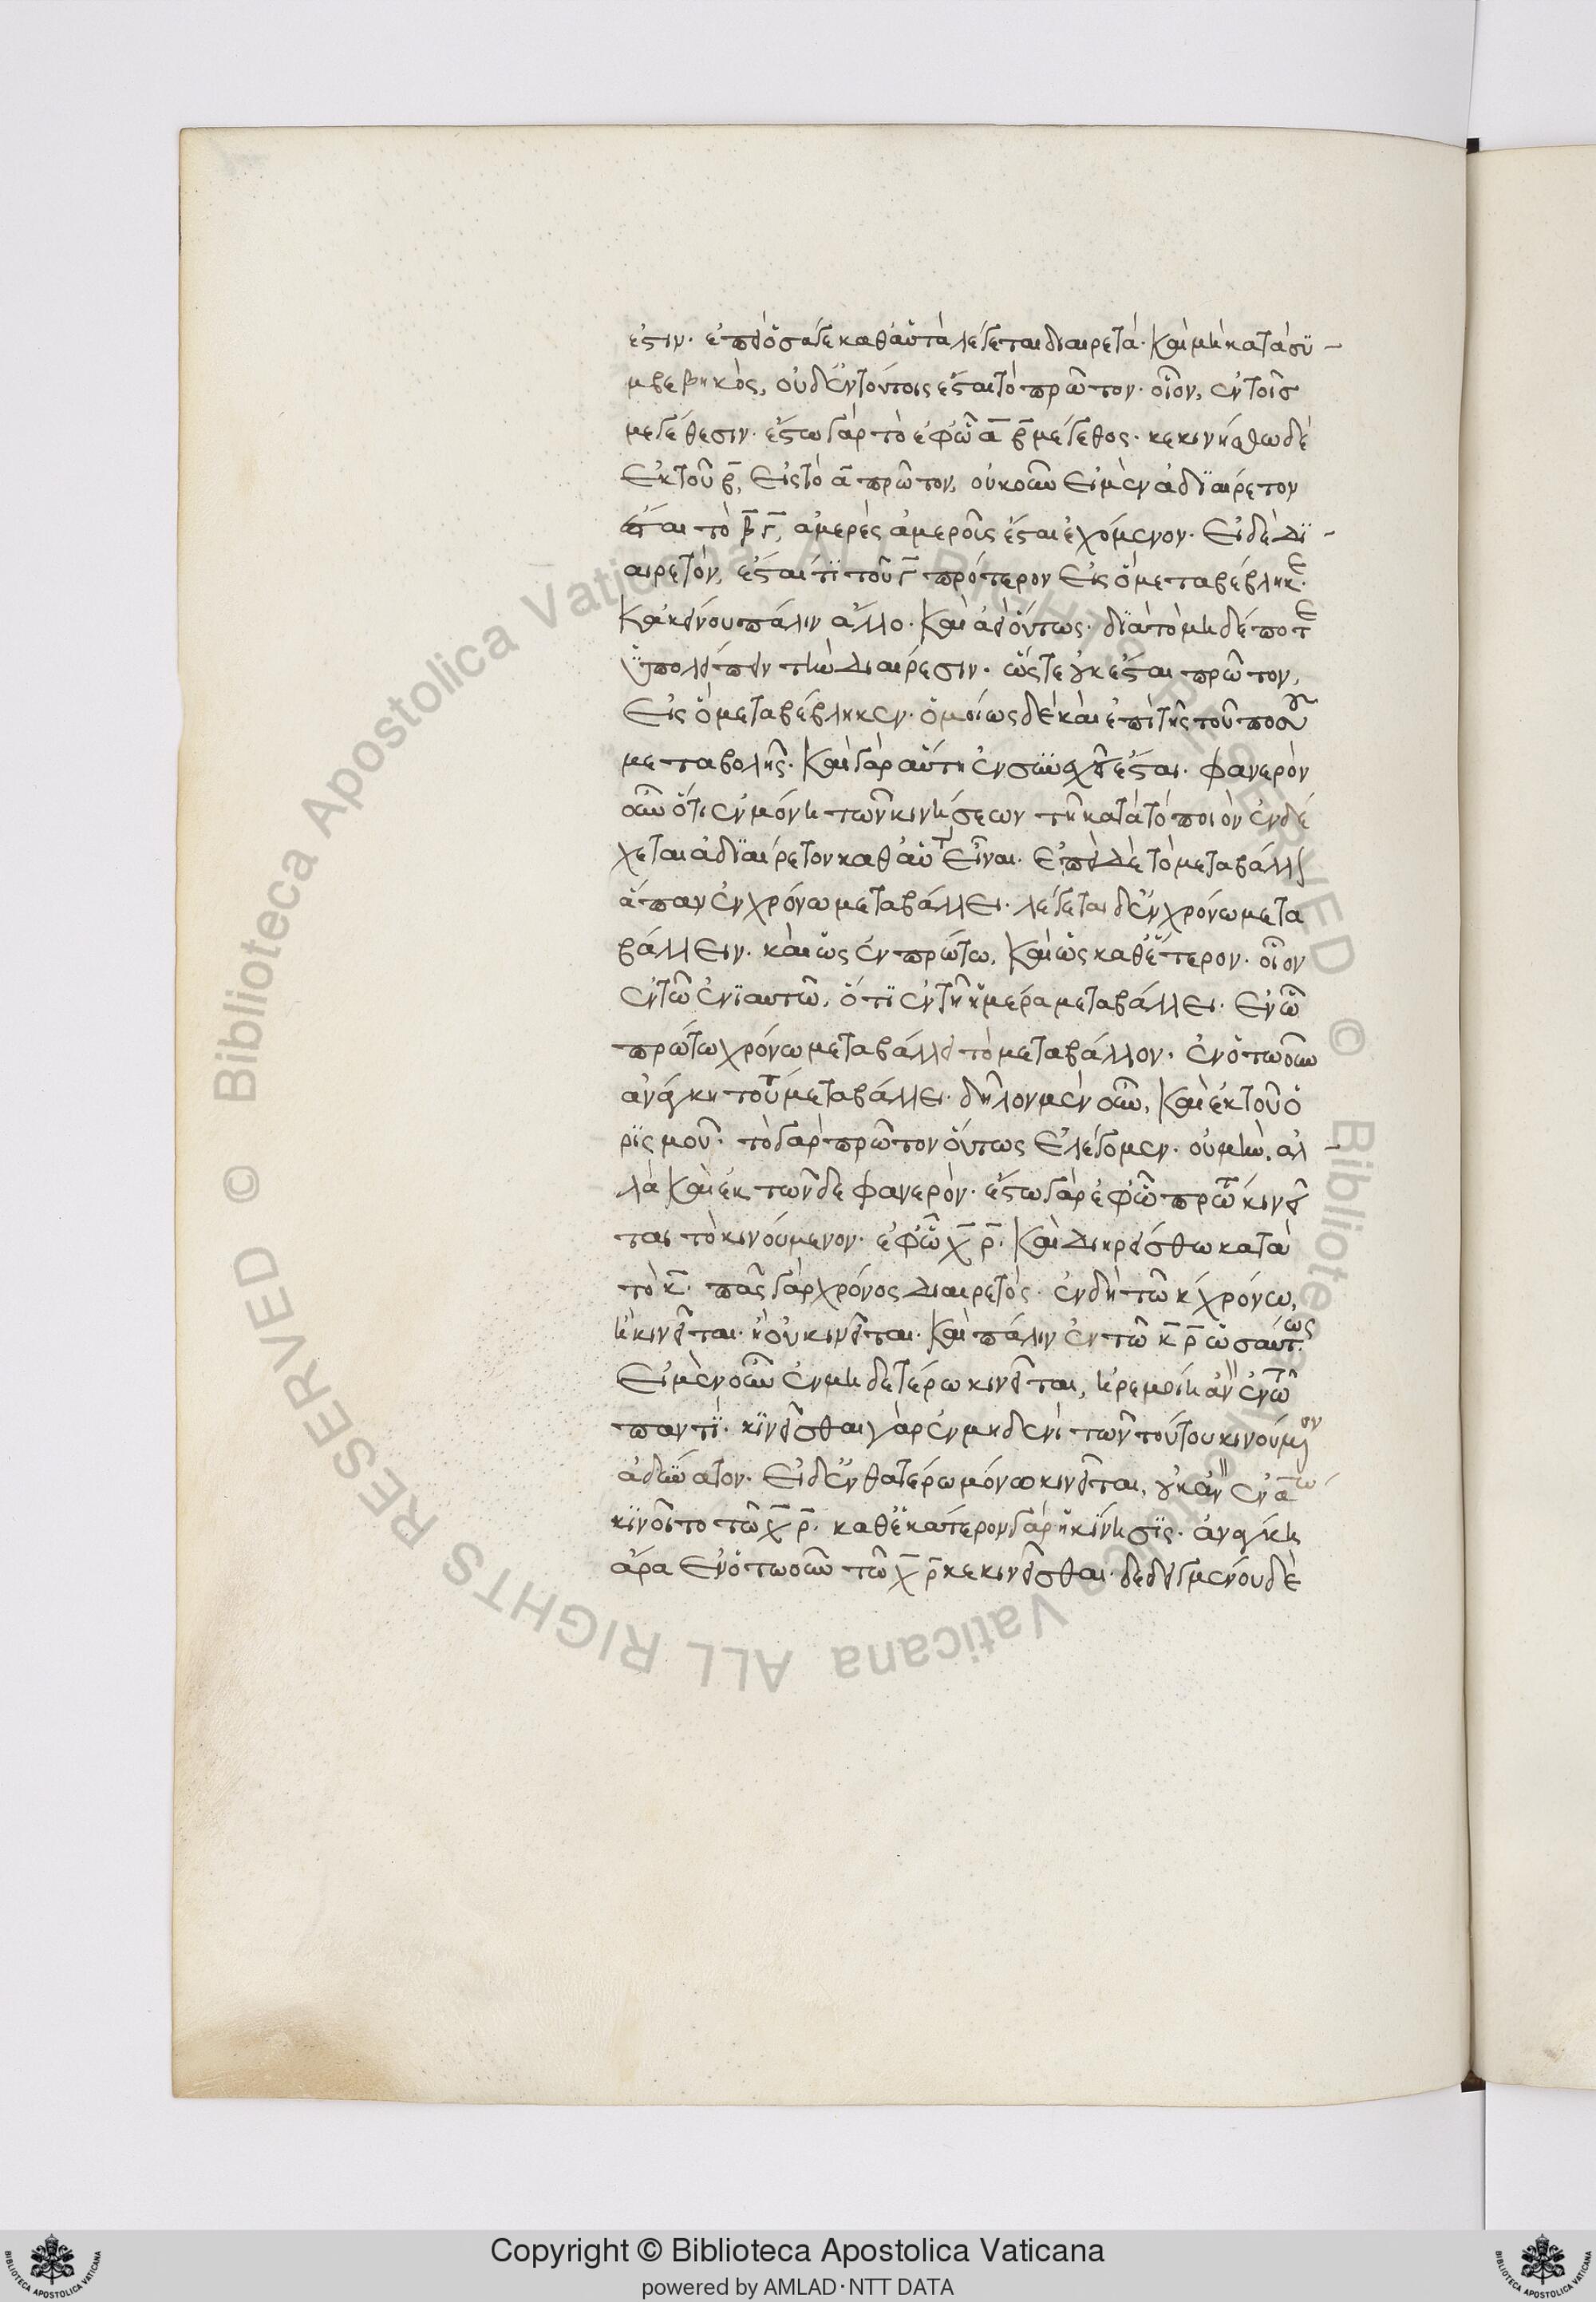 ἐστιν· ἐπεὶ ὅσα δὲ καθ' αὑτὰ λέγεται διαιρετά· καὶ μὴ κατὰ συ-
μβεβηκὸς, οὐδ' ἐν τούτοις ἔσται τὸ πρῶτον· οἷον, ἐν τοῖσ
μεγέθεσιν· ἔστω γὰρ τὸ ἐφ' ὧ α β μέγεθος· κεκινήσθω δὲ
ἐκ τοῦ β, εἰς τὸ α πρῶτον, οὐκοῦν εἰ μὲν ἀδϊαίρετον
ἔσται τὸ β γ, ἀμερὲς ἀμεροῖς ἔσται ἐχόμενον· εἰ δὲ δϊ-
αιρετὸν, ἔσται τϊ τοῦ γ πρότερον εἰς ὃ μεταβέβληκε·
κἀκείνου πάλιν ἄλλο· καὶ ἀεὶ οὕτως· δϊὰ τὸ μηδέποτε
ὑπολείπειν τὴν διαίρεσιν· ὥστε οὐκ ἔσται πρῶτον,
εἰς ὃ μεταβέβληκεν· ὁμοίως δὲ καὶ ἐπὶ τῆς τοῦ ποσοῦ
μεταβολῆς· καὶ γὰρ αὕτη ἐν συνεχεῖ ἔσται· φανερὸν
οὖν ὅτι ἐν μόνη τῶν κινήσεων τῆ κατὰ τὸ ποιὸν ἐνδέ
χεται ἀδϊαίρετον καθ' αὑτὸ εἶναι· ἐπεὶ δὲ τὸ μεταβάλλον
ἅπαν ἐν χρόνω μεταβάλλει· λέγεται δ' ἐν χρόνω μετα
βάλλειν· καὶ ὡς ἐν πρώτω, καὶ ὡς καθ' ἕτερον· οἷον
ἐν τῶ ἐνϊαυτῶ, ὅτϊ ἐν τῆ ἡμέρα μεταβάλλει· ἐν ὧ
πρώτω χρόνω μεταβάλλει τὸ μεταβάλλον· ἐν ὁτωοῦν
ἀνάγκη τούτου μεταβάλλει· δῆλον μὲν οὖν, καὶ ἐκ τοῦ ὁ
ρϊσμοῦ· τὸ γὰρ πρῶτον οὕτως ἐλέγομεν· οὐ μὴν, ἀλ-
λὰ καὶ ἐκ τῶνδε φανερὸν· ἔστω γὰρ ἐφ' ὧ πρώτω κινεῖ
ται τὸ κινούμενον· ἐφ' ὧ χ ρ· καὶ διηρείσθω κατὰ
τὸ κ· πᾶς γὰρ χρόνος διαιρετός· ἐν δὴ τῶ χ κ χρόνω,
ἢ κινεῖται· ἢ οὐ κινεῖται· καὶ πάλιν ἐν τῶ κ ρ ὡσαύτως
εἰ μὲν οὖν ἐν μηδετέρω κινεῖται, ἠρεμοίη ἂν ἐν τῶ
παντϊ· κϊνεῖσθαι γὰρ ἐν μηδενὶ τῶν τούτου κινούμενον
ἀδύνατον· εἰ δ' ἐν θατέρω μόνω κινεῖται, οὐκ ἂν ἐν α ω
κϊνοῖτο τῶ χ ρ· καθ' ἑκάτερον γὰρ ἡ κίνησϊς· ἀνάγκη
ἄρα ἐν ὁτωοῦν τῶ χ ρ κεκινεῖσθαι· δεδειγμένου δὲ